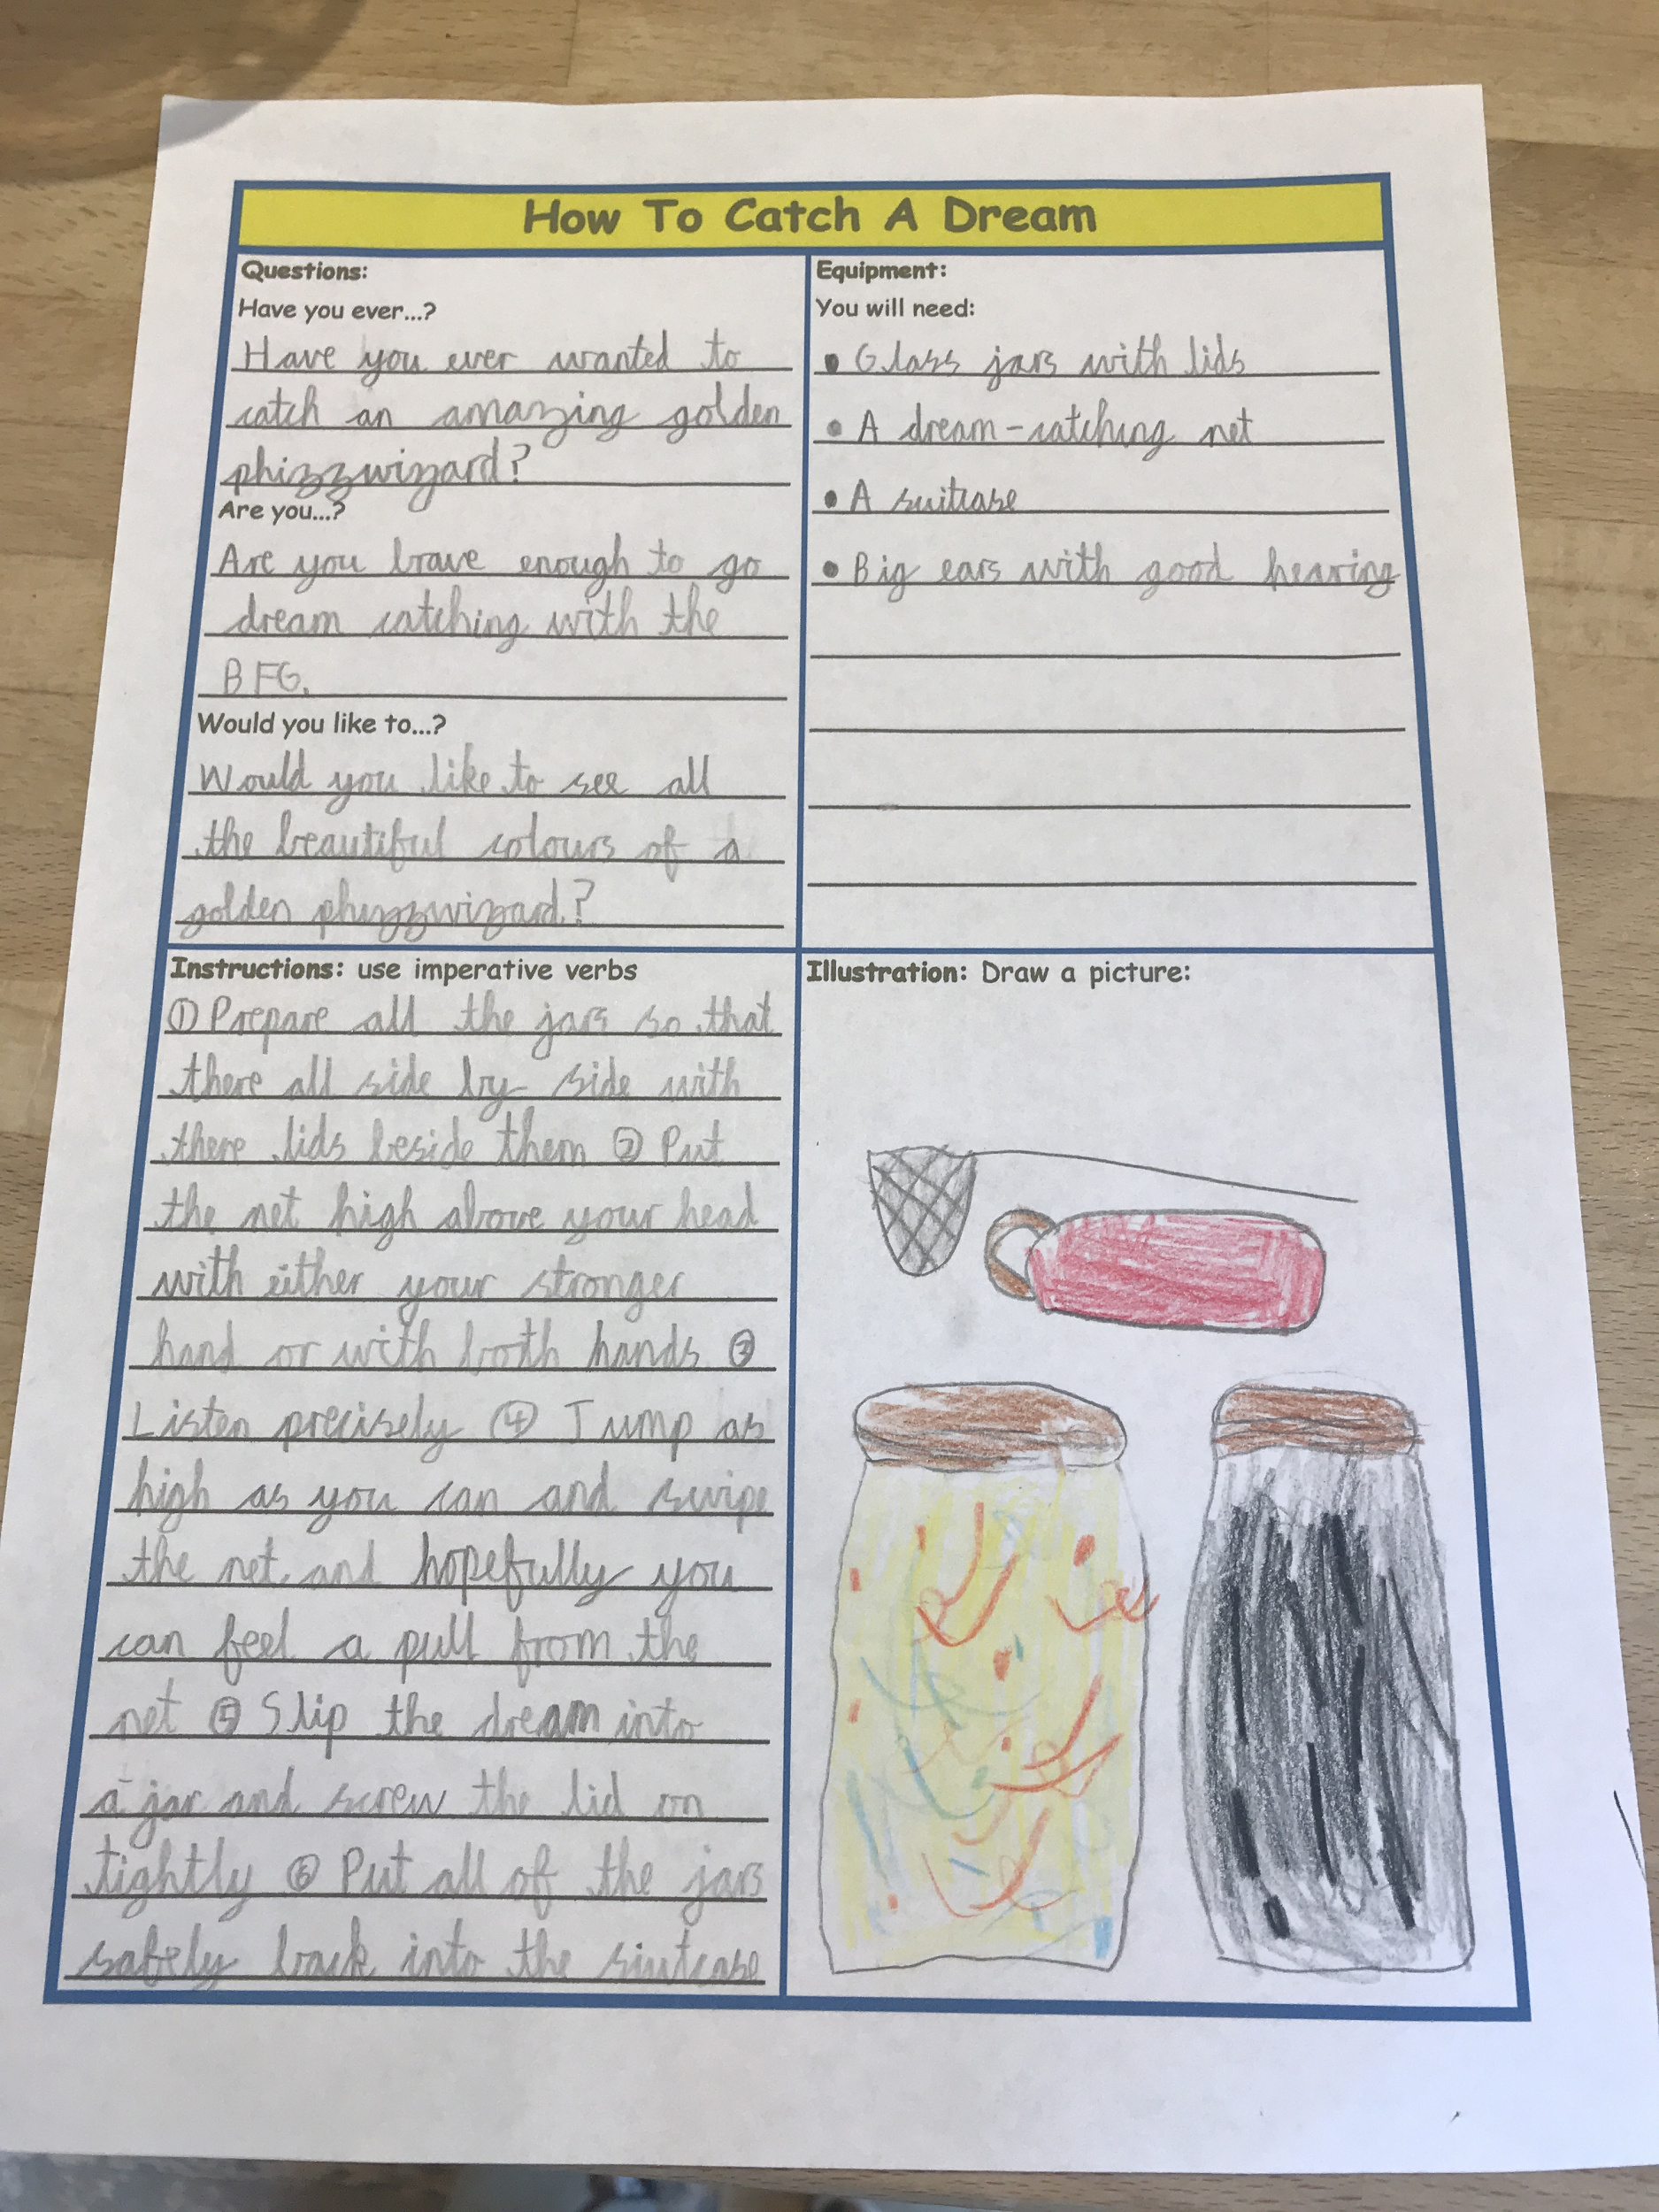 How To Catch A Dream
Questions:
Have you ever...?
Have you ever wanted to
catch an amazing golden
phizzwizzard?
Are you...?
Are you brave enough to go
dream catching with the
BFG.
Would you like to...?
Would you like to see all
the beautiful colours of a
golden phizzwizard?
Equipment:
You will need:
• Glass jars with lids
• A dream-catching net
• A suitcase
• Big ears with good hearing
Instructions: use imperative verbs
① Prepare all the jars so that
there all side by side with
there lids beside them ② Put
the net high above your head
with either your stronger
hand or with both hands ③
Listen precisely ④ Jump as
high as you can and swipe
the net and hopefully you
can feel a pull from the
net ⑤ Slip the dream into
a jar and screw the lid on
tightly ⑥ Put all of the jars
safely back into the siutcase
Illustration: Draw a picture: